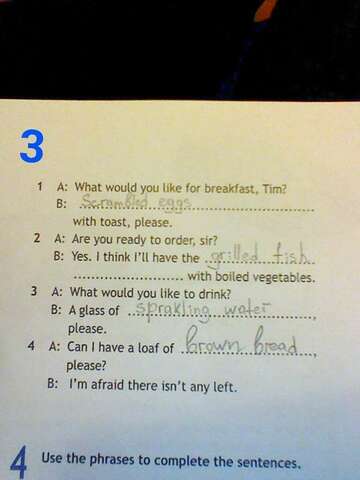 3
1 A: What would you like for breakfast, Tim?
B: Scrambled eggs
with toast, please.
2 A: Are you ready to order, sir?
B: Yes. I think I'll have the grilled fish
........................ with boiled vegetables.
3 A: What would you like to drink?
B: A glass of sprakling water,
please.
4 A: Can I have a loaf of brown bread,
please?
B: I'm afraid there isn't any left.
4 Use the phrases to complete the sentences.